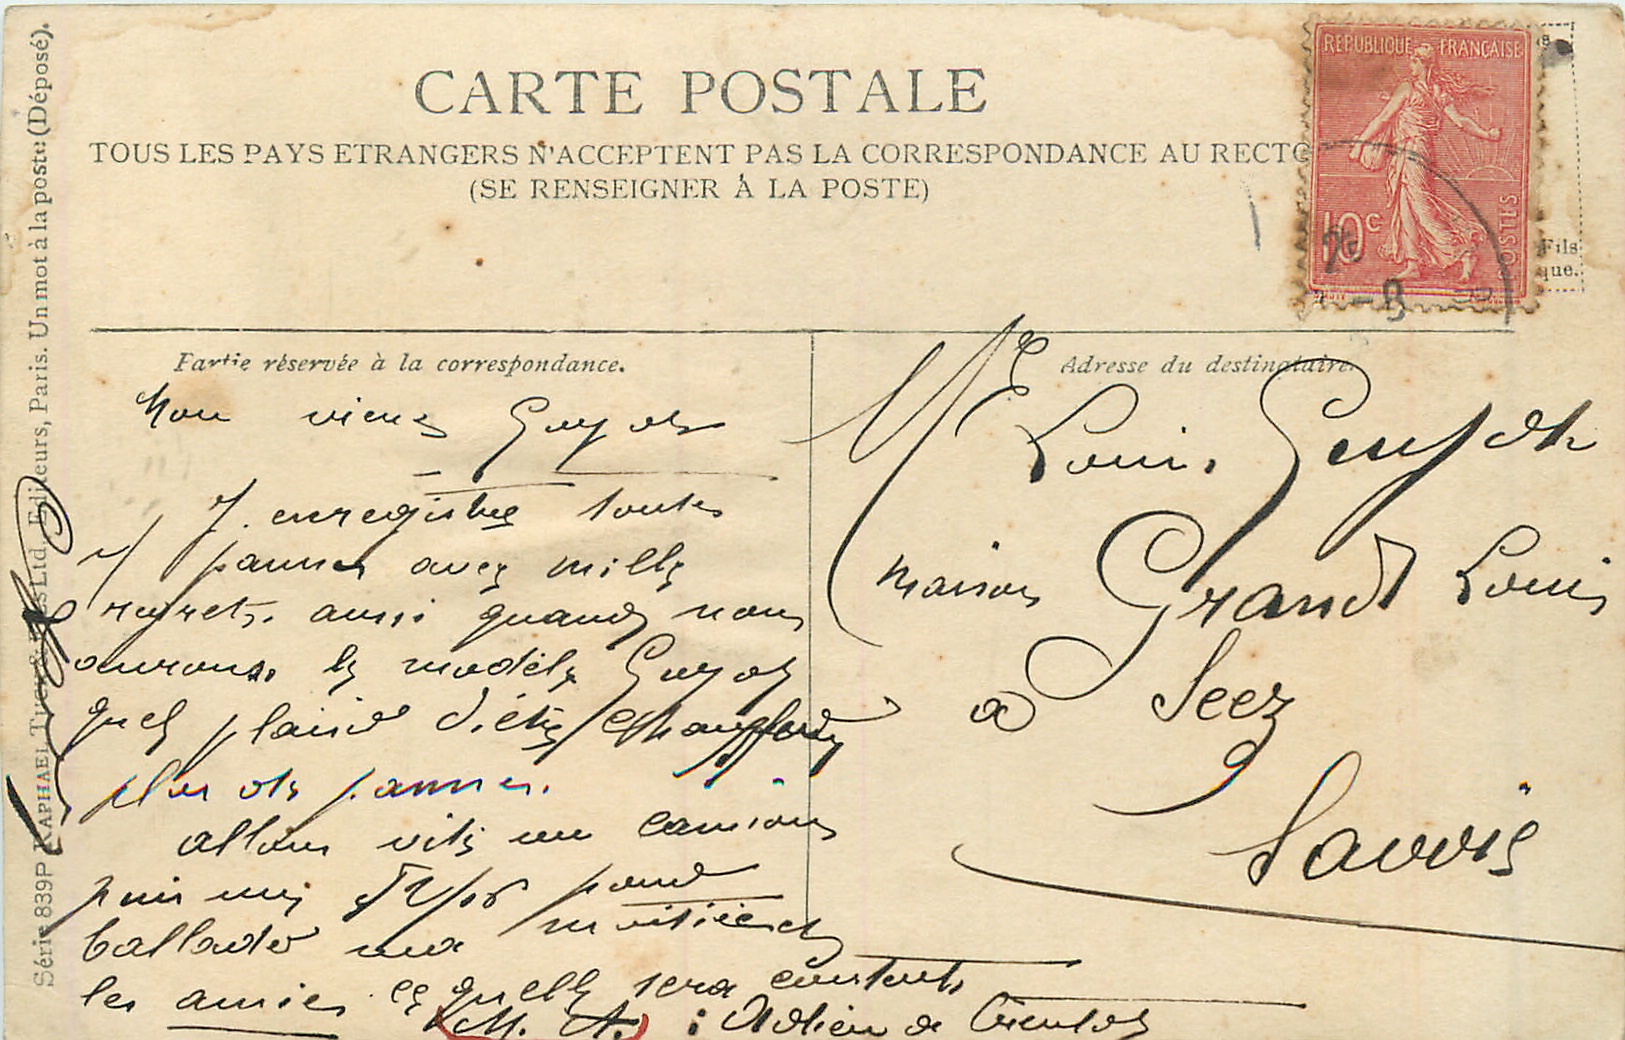 CARTE POSTALE
TOUS LES PAYS ETRANGERS N'ACCEPTENT PAS LA CORRESPONDANCE AU RECTO
(SE RENSEIGNER À LA POSTE)
REPUBLIQUE FRANÇAISE
10c
POSTES
Fils
que.
Partie réservée à la correspondance.
Mon vieux Guyot
J. enregistre toutes
pannes avec mille
regrets. aussi quand nous
aurons le modèle Guyot
quel plaisir d'être chauffeur
plus de pannes.
allons vite un camion
puis une pour
ballader ma moitié et
les amies ce quelle sera contente
M. A. : Adrien de
Adresse du destinataire.
Mr Louis Guyot
maison Grand Louis
a Seez
Savoie
Série 839P RAPHAEL TUCK & Fils Ltd, Editeurs, Paris. Un mot à la poste (Déposé).